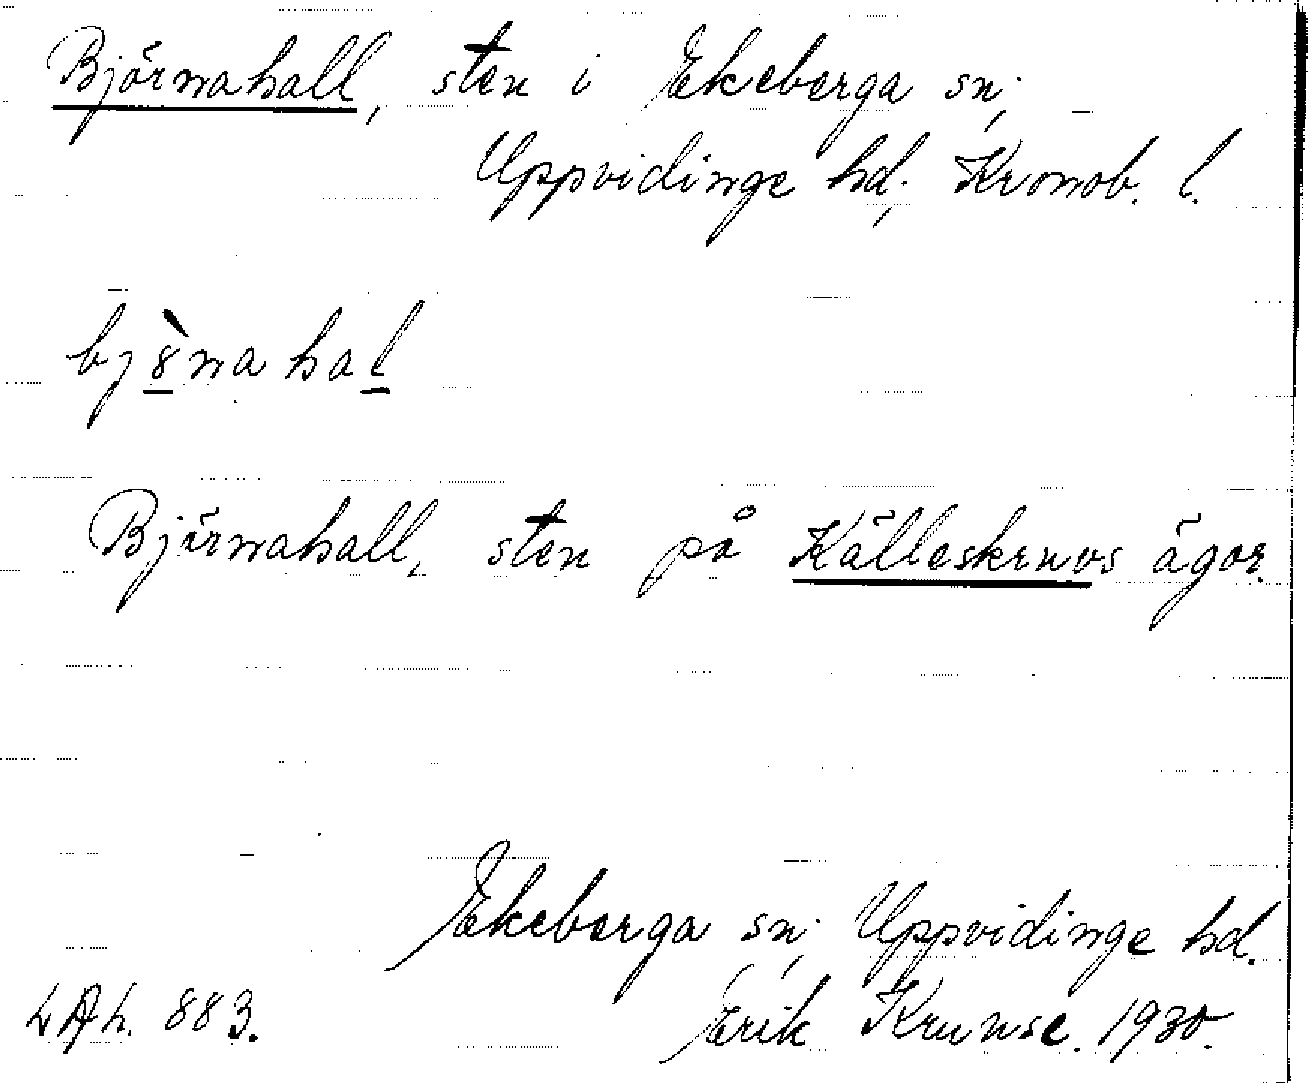 Björnahall, sten i Ekeberga sn;
Uppvidinge hd; Kronob. l.
Björnahall, sten på Källeskruvs ägor.
Ekeberga sn; Uppvidinge hd.
883. Erik 1930.